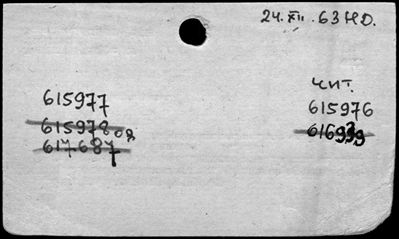 24.XII.63 НО.
615977
615978 ОЯ
617687
чит.
615976